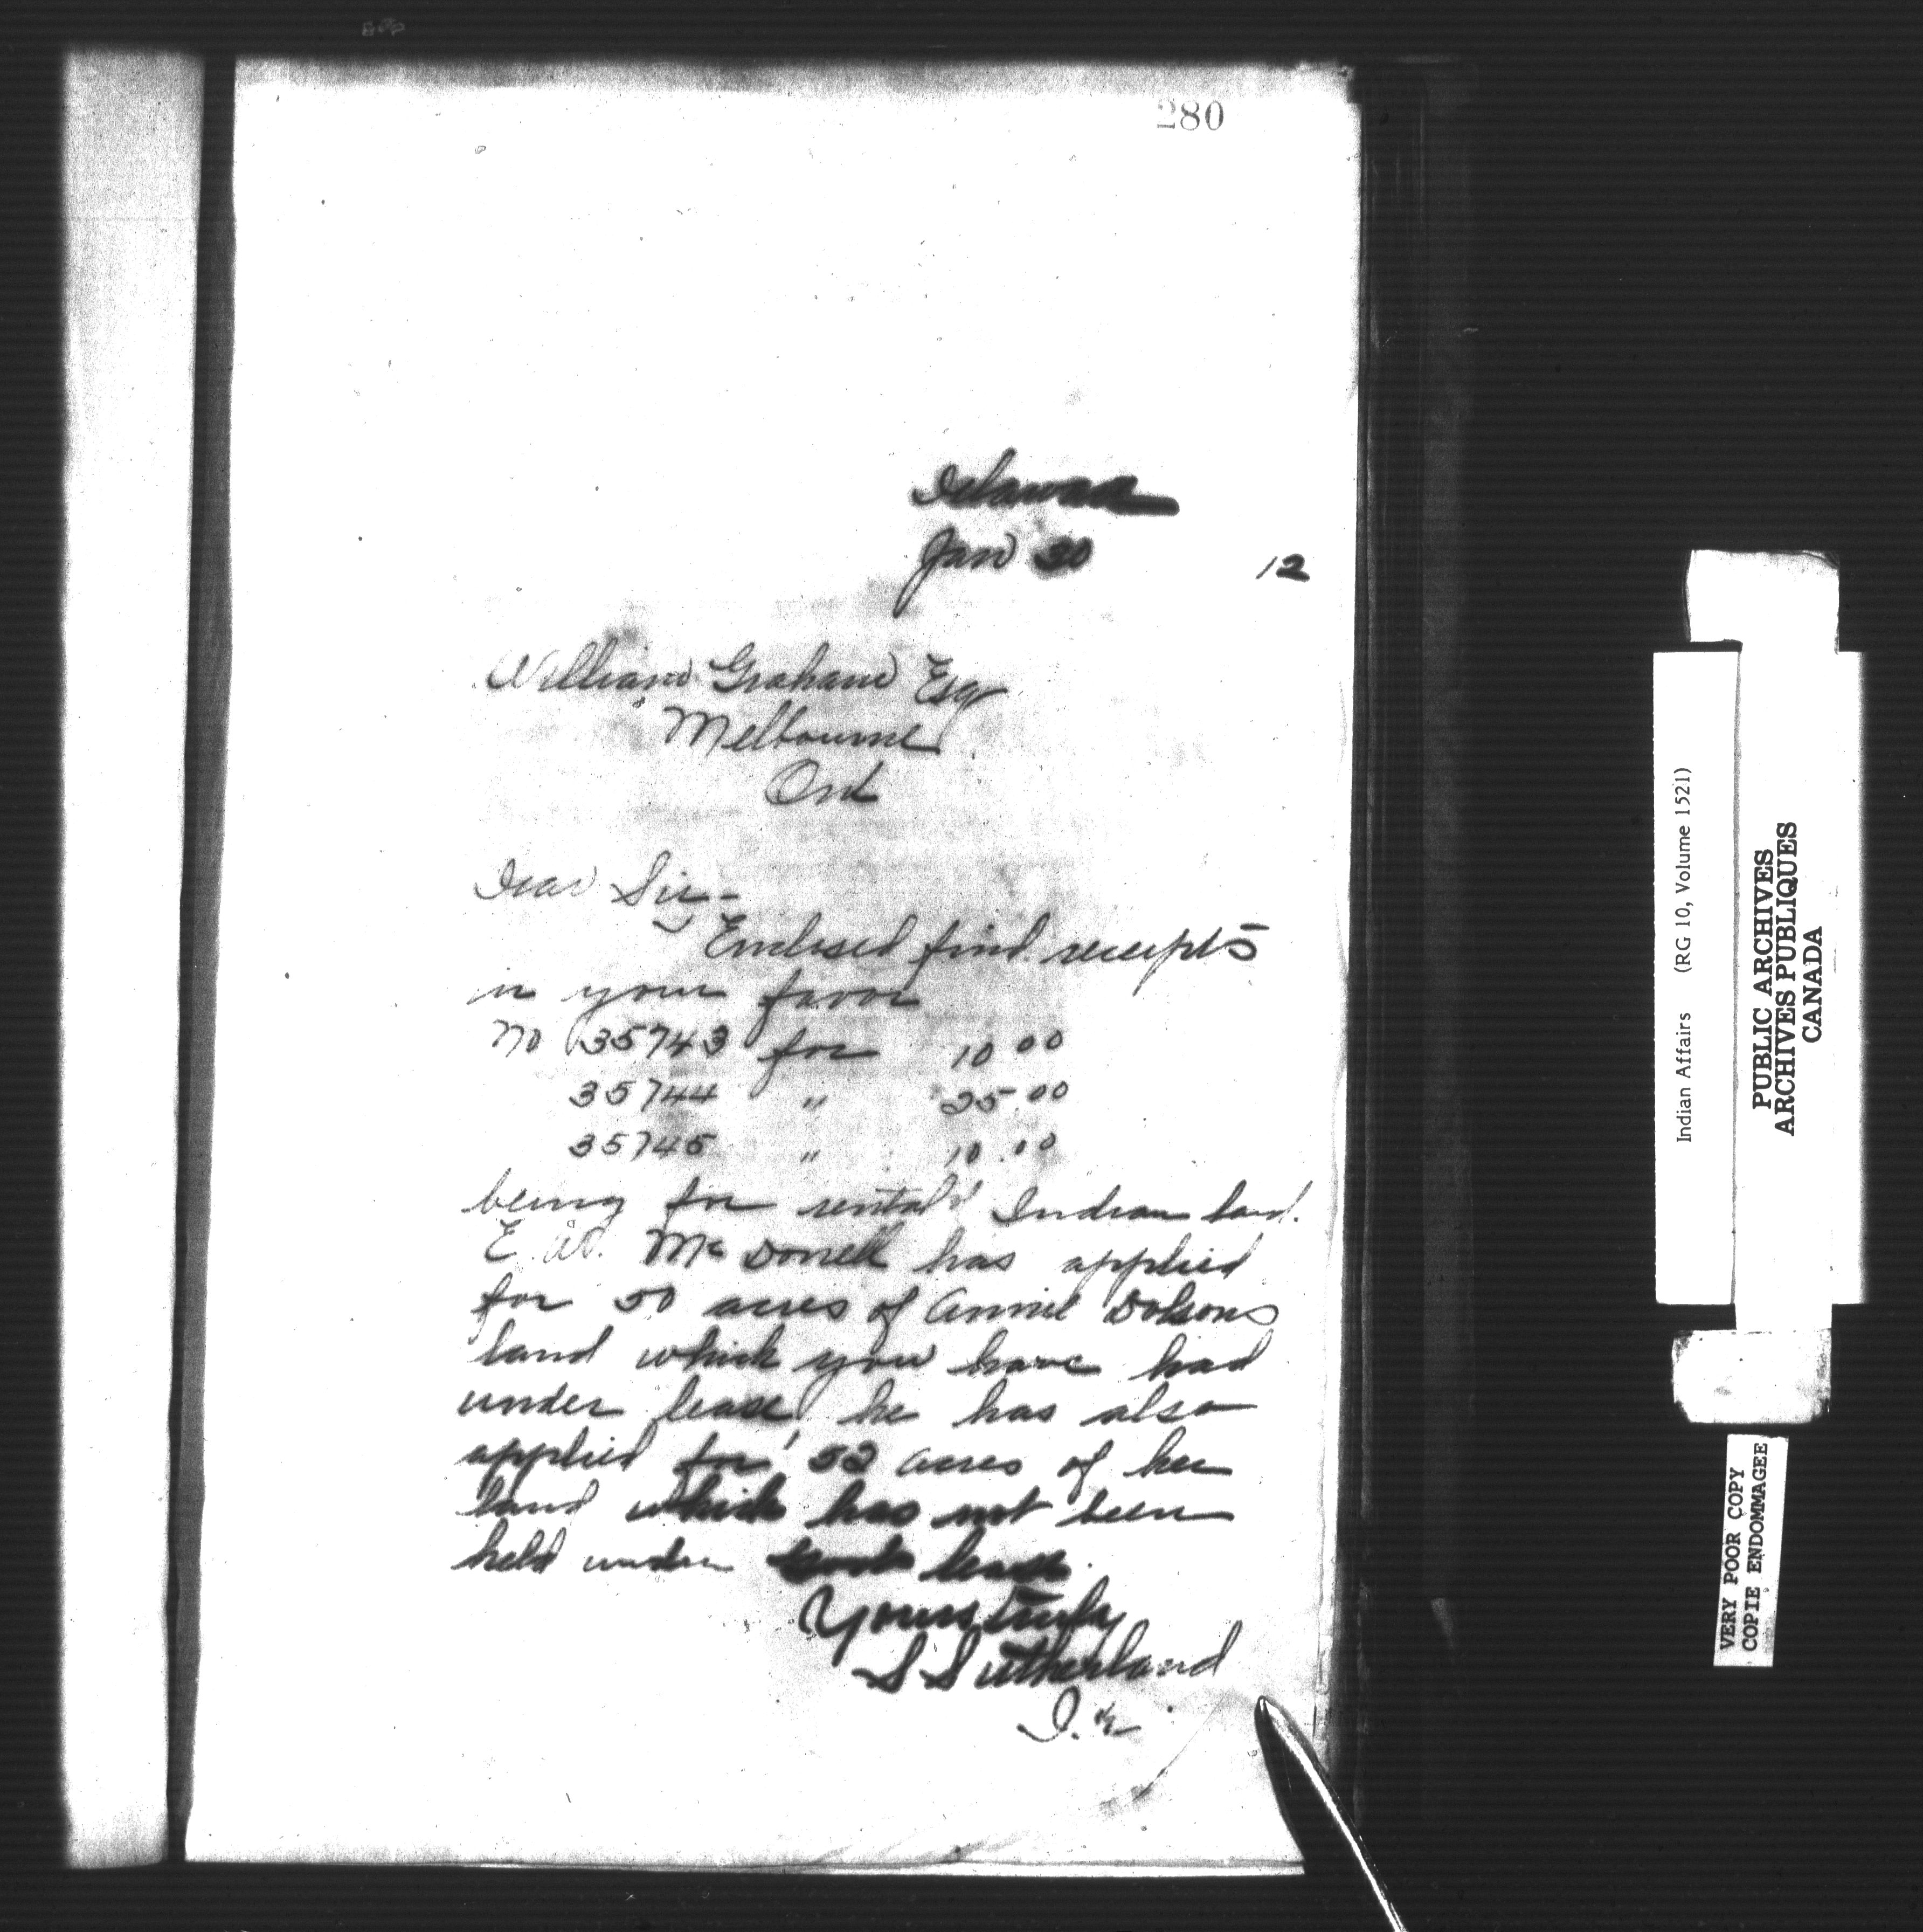 280
Delaware
Jan 30 12
William Graham Esq
Melbourne
Ont
Dear Sir-
Enclosed find receipts
in your favor
No 35743 for 10 00
35744 " 25.00
35745 " 10.00
being for rental Indian land.
E. W. McDonell has applied
for 50 acres of Annie Dolsons
land which you have had
under lease, he has also
applied for 52 acres of her
land which has not been
held under lease.
Yours truly
S Sutherland
Indian Affairs (RG 10, Volume 1521)
PUBLIC ARCHIVES
ARCHIVES PUBLIQUES
CANADA
VERY POOR COPY
COPIE ENDOMMAGEE